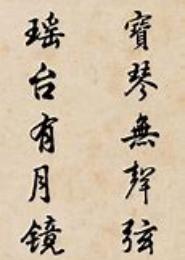 寶琴無聲弦
瑶台有月镜